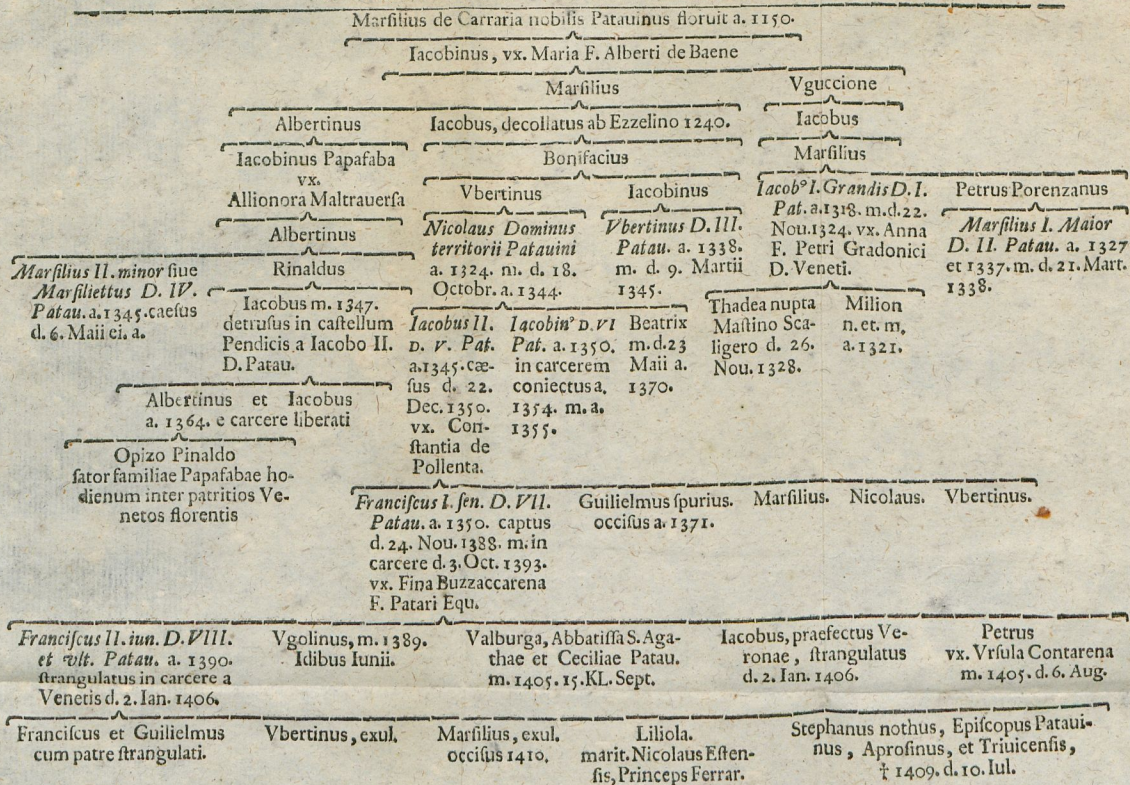 Marſilius de Carraria nobilis Patauinus floruit a. 1150.
Iacobinus, vx. Maria F. Alberti de Baene
Marſilius
Vguccione
Albertinus
Iacobus, decollatus ab Ezzelino 1240.
Iacobus
Iacobinus Papafaba
vx.
Allionora Maltrauerſa
Bonifacius
Marſilius
Vbertinus
Iacobinus
Iacobꝰ I. Grandis D. I.
Pat. a. 1318. m. d. 22.
Nou. 1324. vx. Anna
F. Petri Gradonici
D. Veneti.
Petrus Porenzanus
Albertinus
Nicolaus Dominus
territorii Patauini
a. 1324. m. d. 18.
Octobr. a. 1344.
Vbertinus D. III.
Patau. a. 1338.
m. d. 9. Martii
1345.
Marſilius I. Maior
D. II. Patau. a. 1327
et 1337. m. d. 21. Mart.
1338.
Marſilius II. minor ſiue
Marſiliettus D. IV.
Patau. a. 1345. caeſus
d. 6. Maii ei. a.
Rinaldus
Iacobus m. 1347.
detruſus in caſtellum
Pendicis a Iacobo II.
D. Patau.
Iacobus II.
D. V. Pat.
a. 1345. cæ-
ſus d. 22.
Dec. 1350.
vx. Con-
ſtantia de
Pollenta.
Iacobinꝰ D. VI
Pat. a. 1350.
in carcerem
coniectus a.
1354. m. a.
1355.
Beatrix
m. d. 23
Maii a.
1370.
Thadea nupta
Maſtino Sca-
ligero d. 26.
Nou. 1328.
Milion
n. et. m.
a. 1321.
Albertinus et Iacobus
a. 1364. e carcere liberati
Opizo Pinaldo
ſator familiae Papafabae ho-
dienum inter patritios Ve-
netos florentis
Franciſcus I. ſen. D. VII.
Patau. a. 1350. captus
d. 24. Nou. 1388. m. in
carcere d. 3. Oct. 1393.
vx. Fina Buzzaccarena
F. Patari Equ.
Guilielmus ſpurius.
occiſus a. 1371.
Marſilius.
Nicolaus.
Vbertinus.
Franciſcus II. iun. D. VIII.
et vlt. Patau. a. 1390.
ſtrangulatus in carcere a
Venetis d. 2. Ian. 1406.
Vgolinus, m. 1389.
Idibus Iunii.
Valburga, Abbatiſſa S. Aga-
thae et Ceciliae Patau.
m. 1405. 15. KL. Sept.
Iacobus, praefectus Ve-
ronae, ſtrangulatus
d. 2. Ian. 1406.
Petrus
vx. Vrſula Contarena
m. 1405. d. 6. Aug.
Franciſcus et Guilielmus
cum patre ſtrangulati.
Vbertinus, exul.
Marſilius, exul.
occiſus 1410.
Liliola.
marit. Nicolaus Eſten-
ſis, Princeps Ferrar.
Stephanus nothus, Epiſcopus Pataui-
nus, Aproſinus, et Triuicenſis,
† 1409. d. 10. Iul.